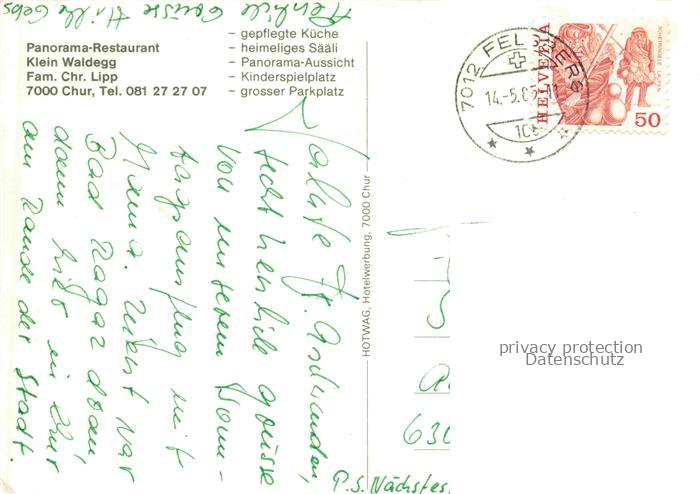 Panorama-Restaurant
Klein Waldegg
Fam. Chr. Lipp
7000 Chur, Tel. 081 27 27 07
– gepflegte Küche
– heimeliges Sääli
– Panorama-Aussicht
– Kinderspielplatz
– grosser Parkplatz
HOTWAG, Hotelwerbung, 7000 Chur
7012 FELSBERG
14.-5.85-11
HELVETIA
ACHETRINGELE LAUPEN
50
Fr.
recht herzliche Grüsse
von unserem Sonn-
tagsausflug mit
Mama. Zuerst war
Bad Ragaz dran
dann hier in Chur
am Rande der Stadt.
Herzliche Grüsse
630
P.S. Nächstes
privacy protection
Datenschutz